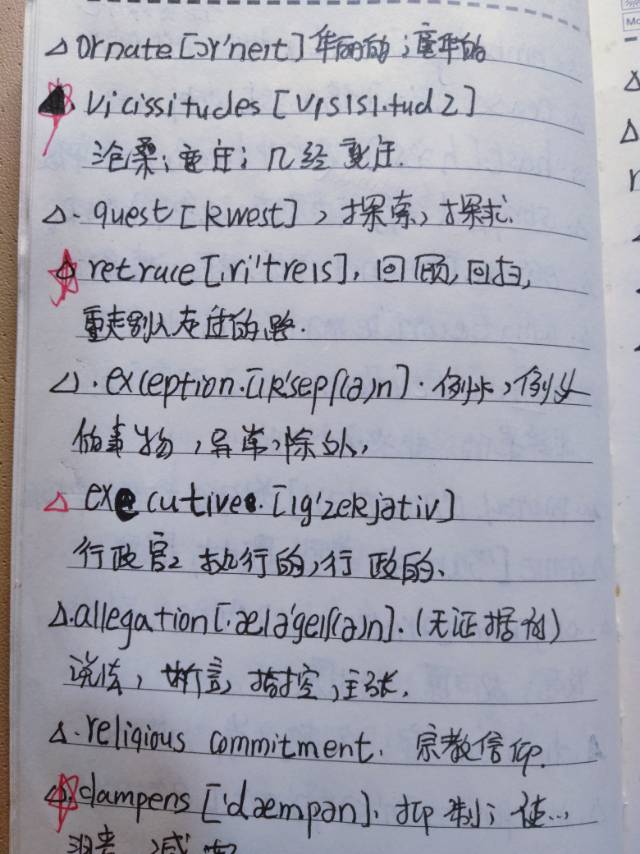 △ ornate [ɔr'neɪt] 华丽的；
▲ vicissitudes [vɪsɪsɪ.tudz]
沧桑；变迁；几经变迁.
△. quest [kwest] , 探索, 探求.
△ retrace [.ri'treɪs], 回顾, 回扫,
重走别人走过的路.
△. exception. [ɪk'sepʃ(ə)n]. 例外, 例外
的事物, 异常, 除外,
△ executive. [ɪg'zekjətɪv]
行政官, 执行的, 行政的、
△. allegation [.ælə'geɪʃ(ə)n]. (无证据的)
说法, 断言, 指控, 主张.
△. religious commitment. 宗教信仰.
△. dampens ['dæmpən]. 抑制；使...